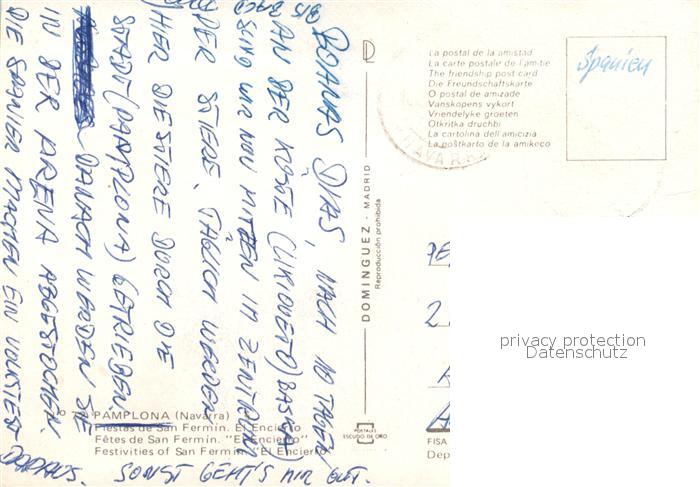 BUANAS DIAS, NACH 10 TAGEN
AN DER KÜSTE (LIKOUETO) BASKEN
SIND WIR NUN MITTEN IM ZENTRUM
DER STIERE. TÄGLICH WERDEN
HIER DIE STIERE DURCH DIE
STADT (PAMPLONA) GETRIEBEN
DANACH WERDEN SIE
IN DER ARENA ABGESTOCHEN.
DIE SPANIER MACHEN EIN VOLKSFEST
DARAUS. SONST GEHT'S MIR GUT.
Nº 72 PAMPLONA (Navarra)
Fiestas de San Fermín. El Encierro
Fêtes de San Fermín. "El Encierro"
Festivities of San Fermín. "El Encierro"
DOMINGUEZ - MADRID
Reproducción prohibida
POSTALES
ESCUDO DE ORO
La postal de la amistad
La carte postale de l'amitie
The friendship post card
Die Freundschaftskarte
O postal de amizade
Vanskopens vykort
Vriendelyke groeten
Otkritka druchbi
La cartolina dell amicizia
La poŝtkarto de la amikeco
Spanien
2
FISA
Dep
privacy protection
Datenschutz